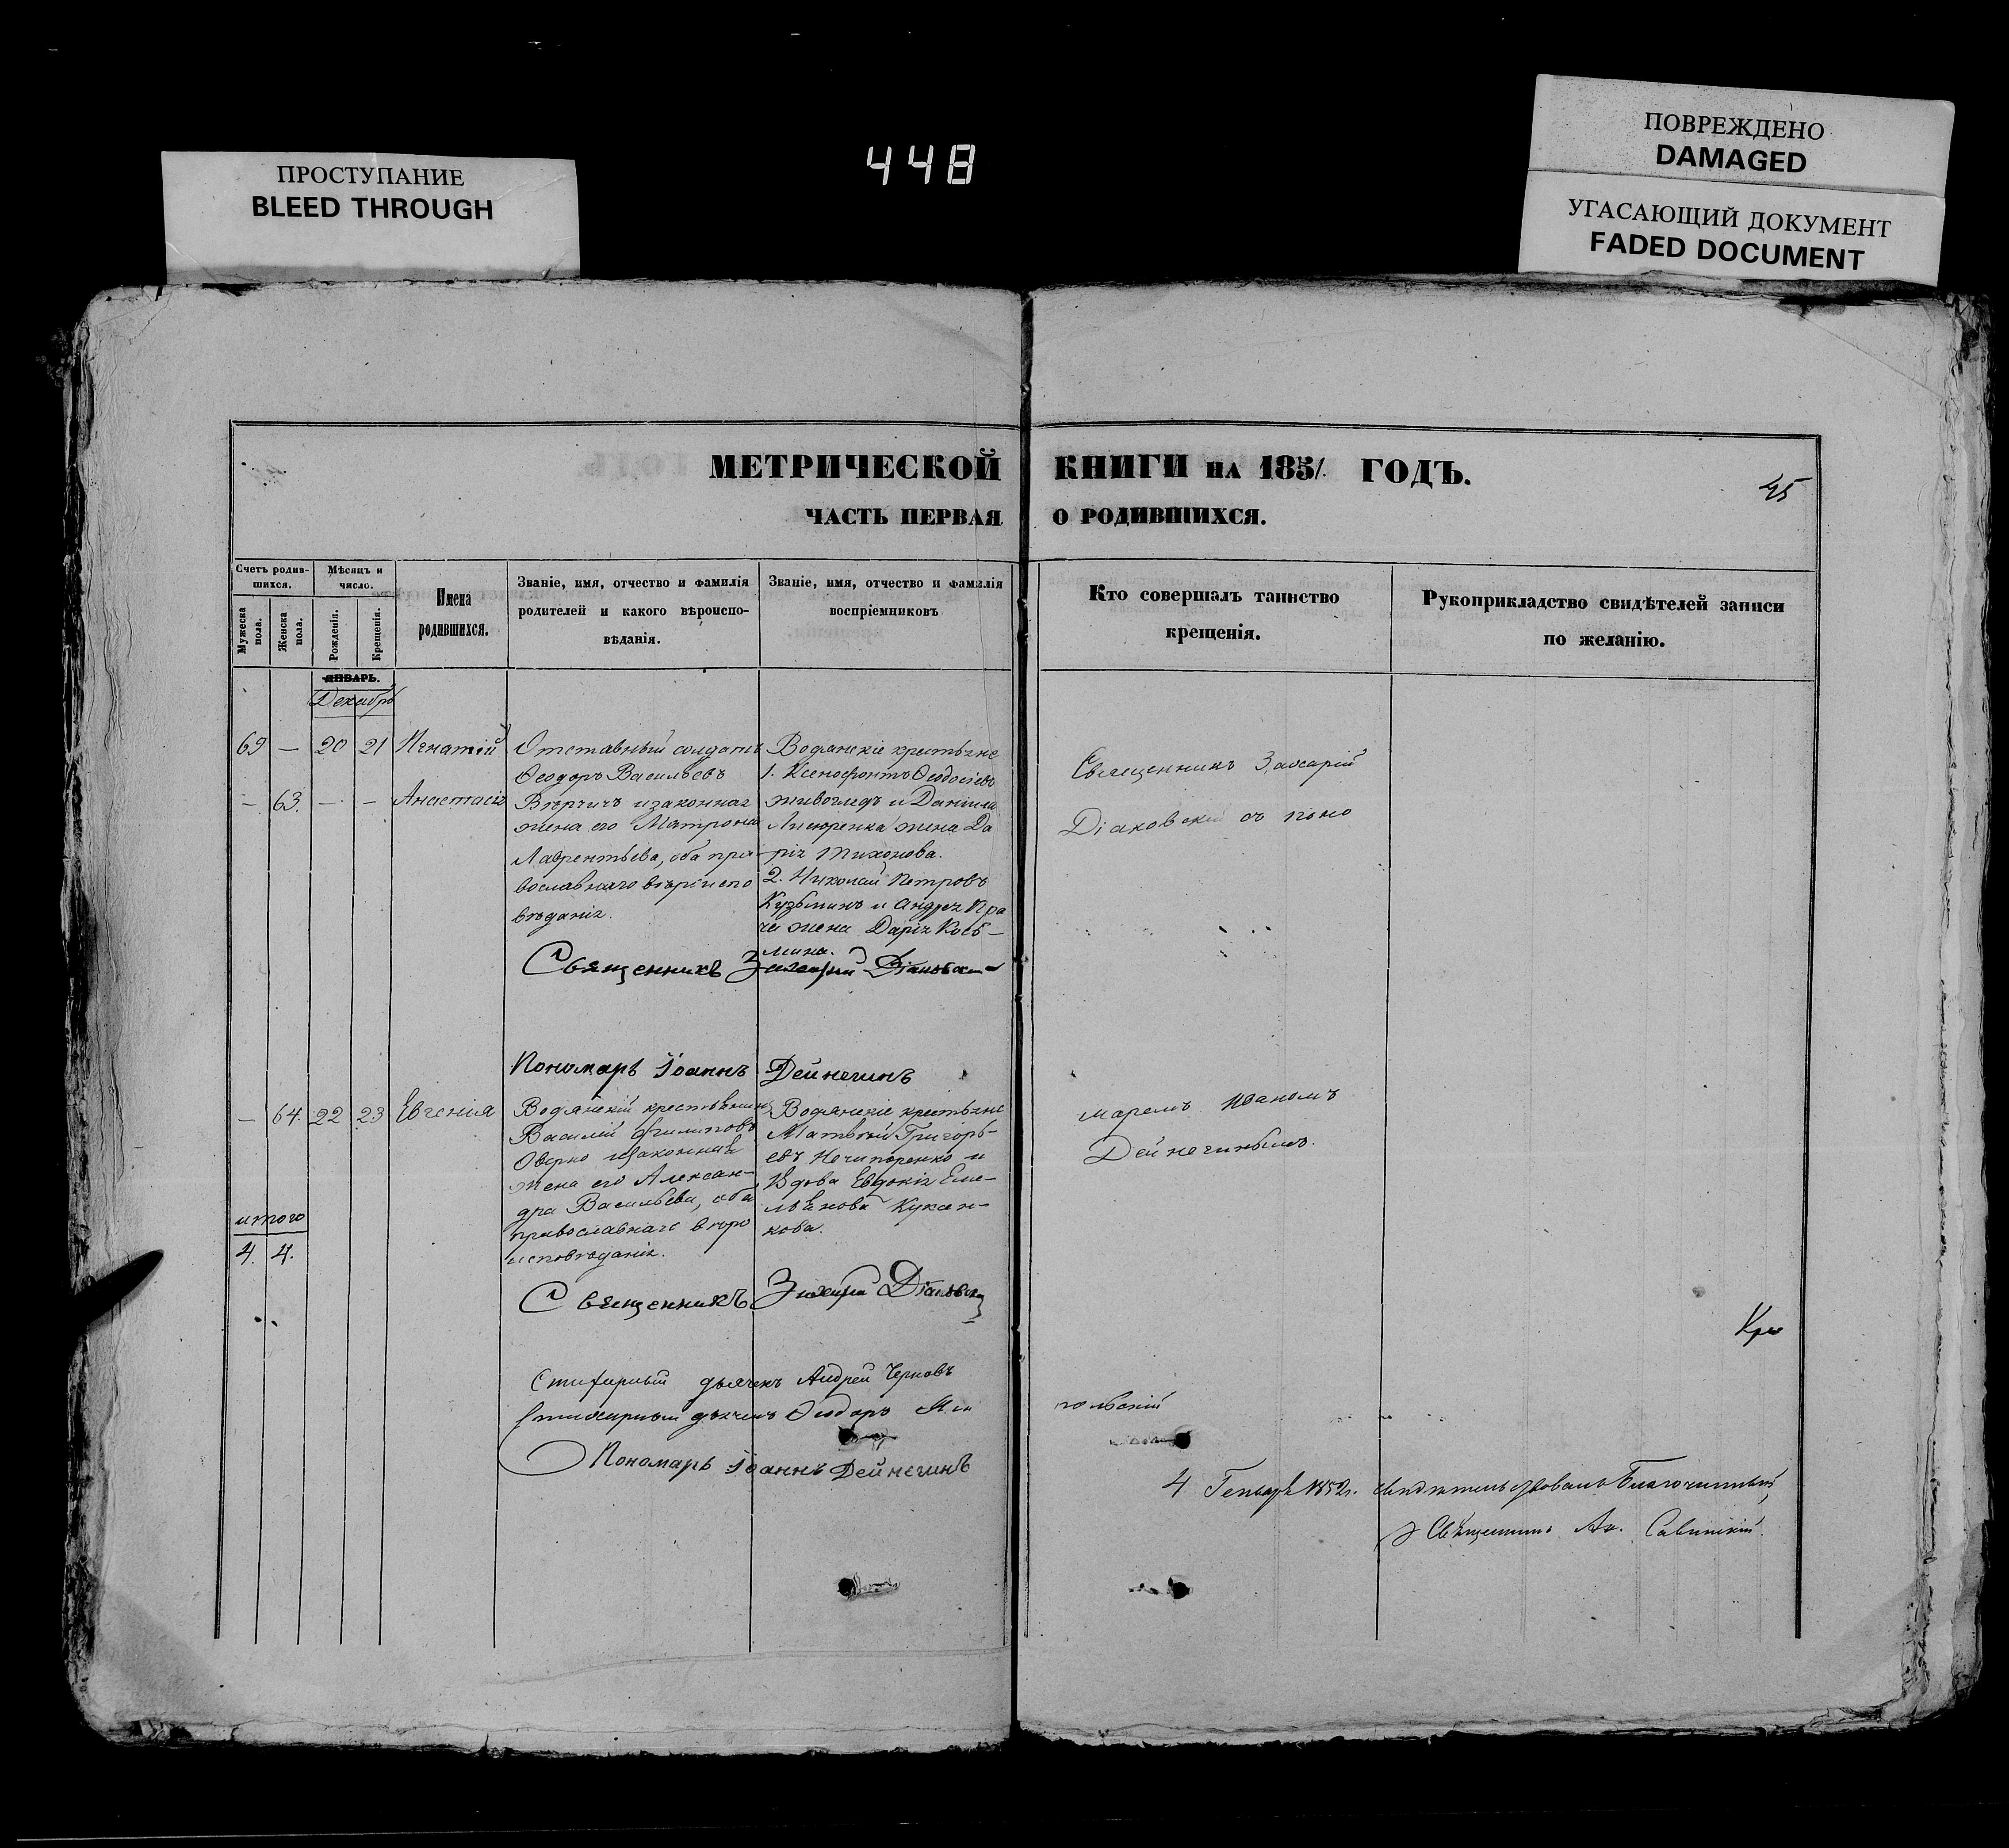 ПРОСТУПАНИЕ
BLEED THROUGH
448
ПОВРЕЖДЕНО
DAMAGED
УГАСАЮЩИЙ ДОКУМЕНТ
FADED DOCUMENT
МЕТРИЧЕСКОЙ КНИГИ НА 1851 ГОДЪ.
45
ЧАСТЬ ПЕРВАЯ О РОДИВШИХСЯ.
Счетъ родив-
шихся.
Мужеска
пола.
Женска
пола.
Мѣсяцъ и
число.
Рожденія.
Крещенія.
Имена
родившихся.
Званіе, имя, отчество и фамилія
родителей и какого вѣроиспо-
вѣданія.
Званіе, имя, отчество и фамилія
воспріемниковъ
Кто совершалъ таинство
крещенія.
Рукоприкладство свидѣтелей записи
по желанію.
ЯНВАРЬ.
Декабрь
69 — 20 21 Игнатій
— 63. — — Анастасія
Отставный солдатъ
Ѳеодоръ Васильевъ
изаконная
жена его Матрона
Лаврентьева, оба пра-
вославнаго вѣроиспо
вѣданія.
Водянскіе крестьяне
1. Ксенофонтъ Ѳеодосіевъ
и Даніила
жена Да
рія Тихонова.
2. Николай Петровъ
Кузьминъ и Андрея
жена Дарія Козь-
мина.
Священникъ Захарій
Діаковскій съ поно
Священникъ Захарій Діаковскій
Пономарь Іоаннъ Дейнегинъ
— 64. 22 23 Евгенія
Водянскій крестьянинъ
Василій Филиповъ
изаконная
жена его Алексан-
дра Васильева, оба
православнаго вѣро
исповѣданія.
Водянскіе крестьяне
Матвѣй Григорь-
евъ Нечипоренко и
Вдова Евдокія Еме-
льянова
кова.
маремъ Иваномъ
Дейнегинымъ.
итого
4. 4.
Священникъ Захарій Діаковскій
дьячекъ Андрей Черновъ
Ѳеодоръ
польскій
Пономарь Іоаннъ Дейнегинъ
4 Генваря 1852 г. свидѣтельствовалъ Благочинный,
Священникъ Савинскій.